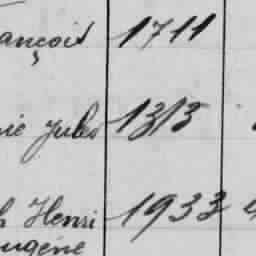 ançois 1711
ie Jules 1313
h Henri 1933
ugène